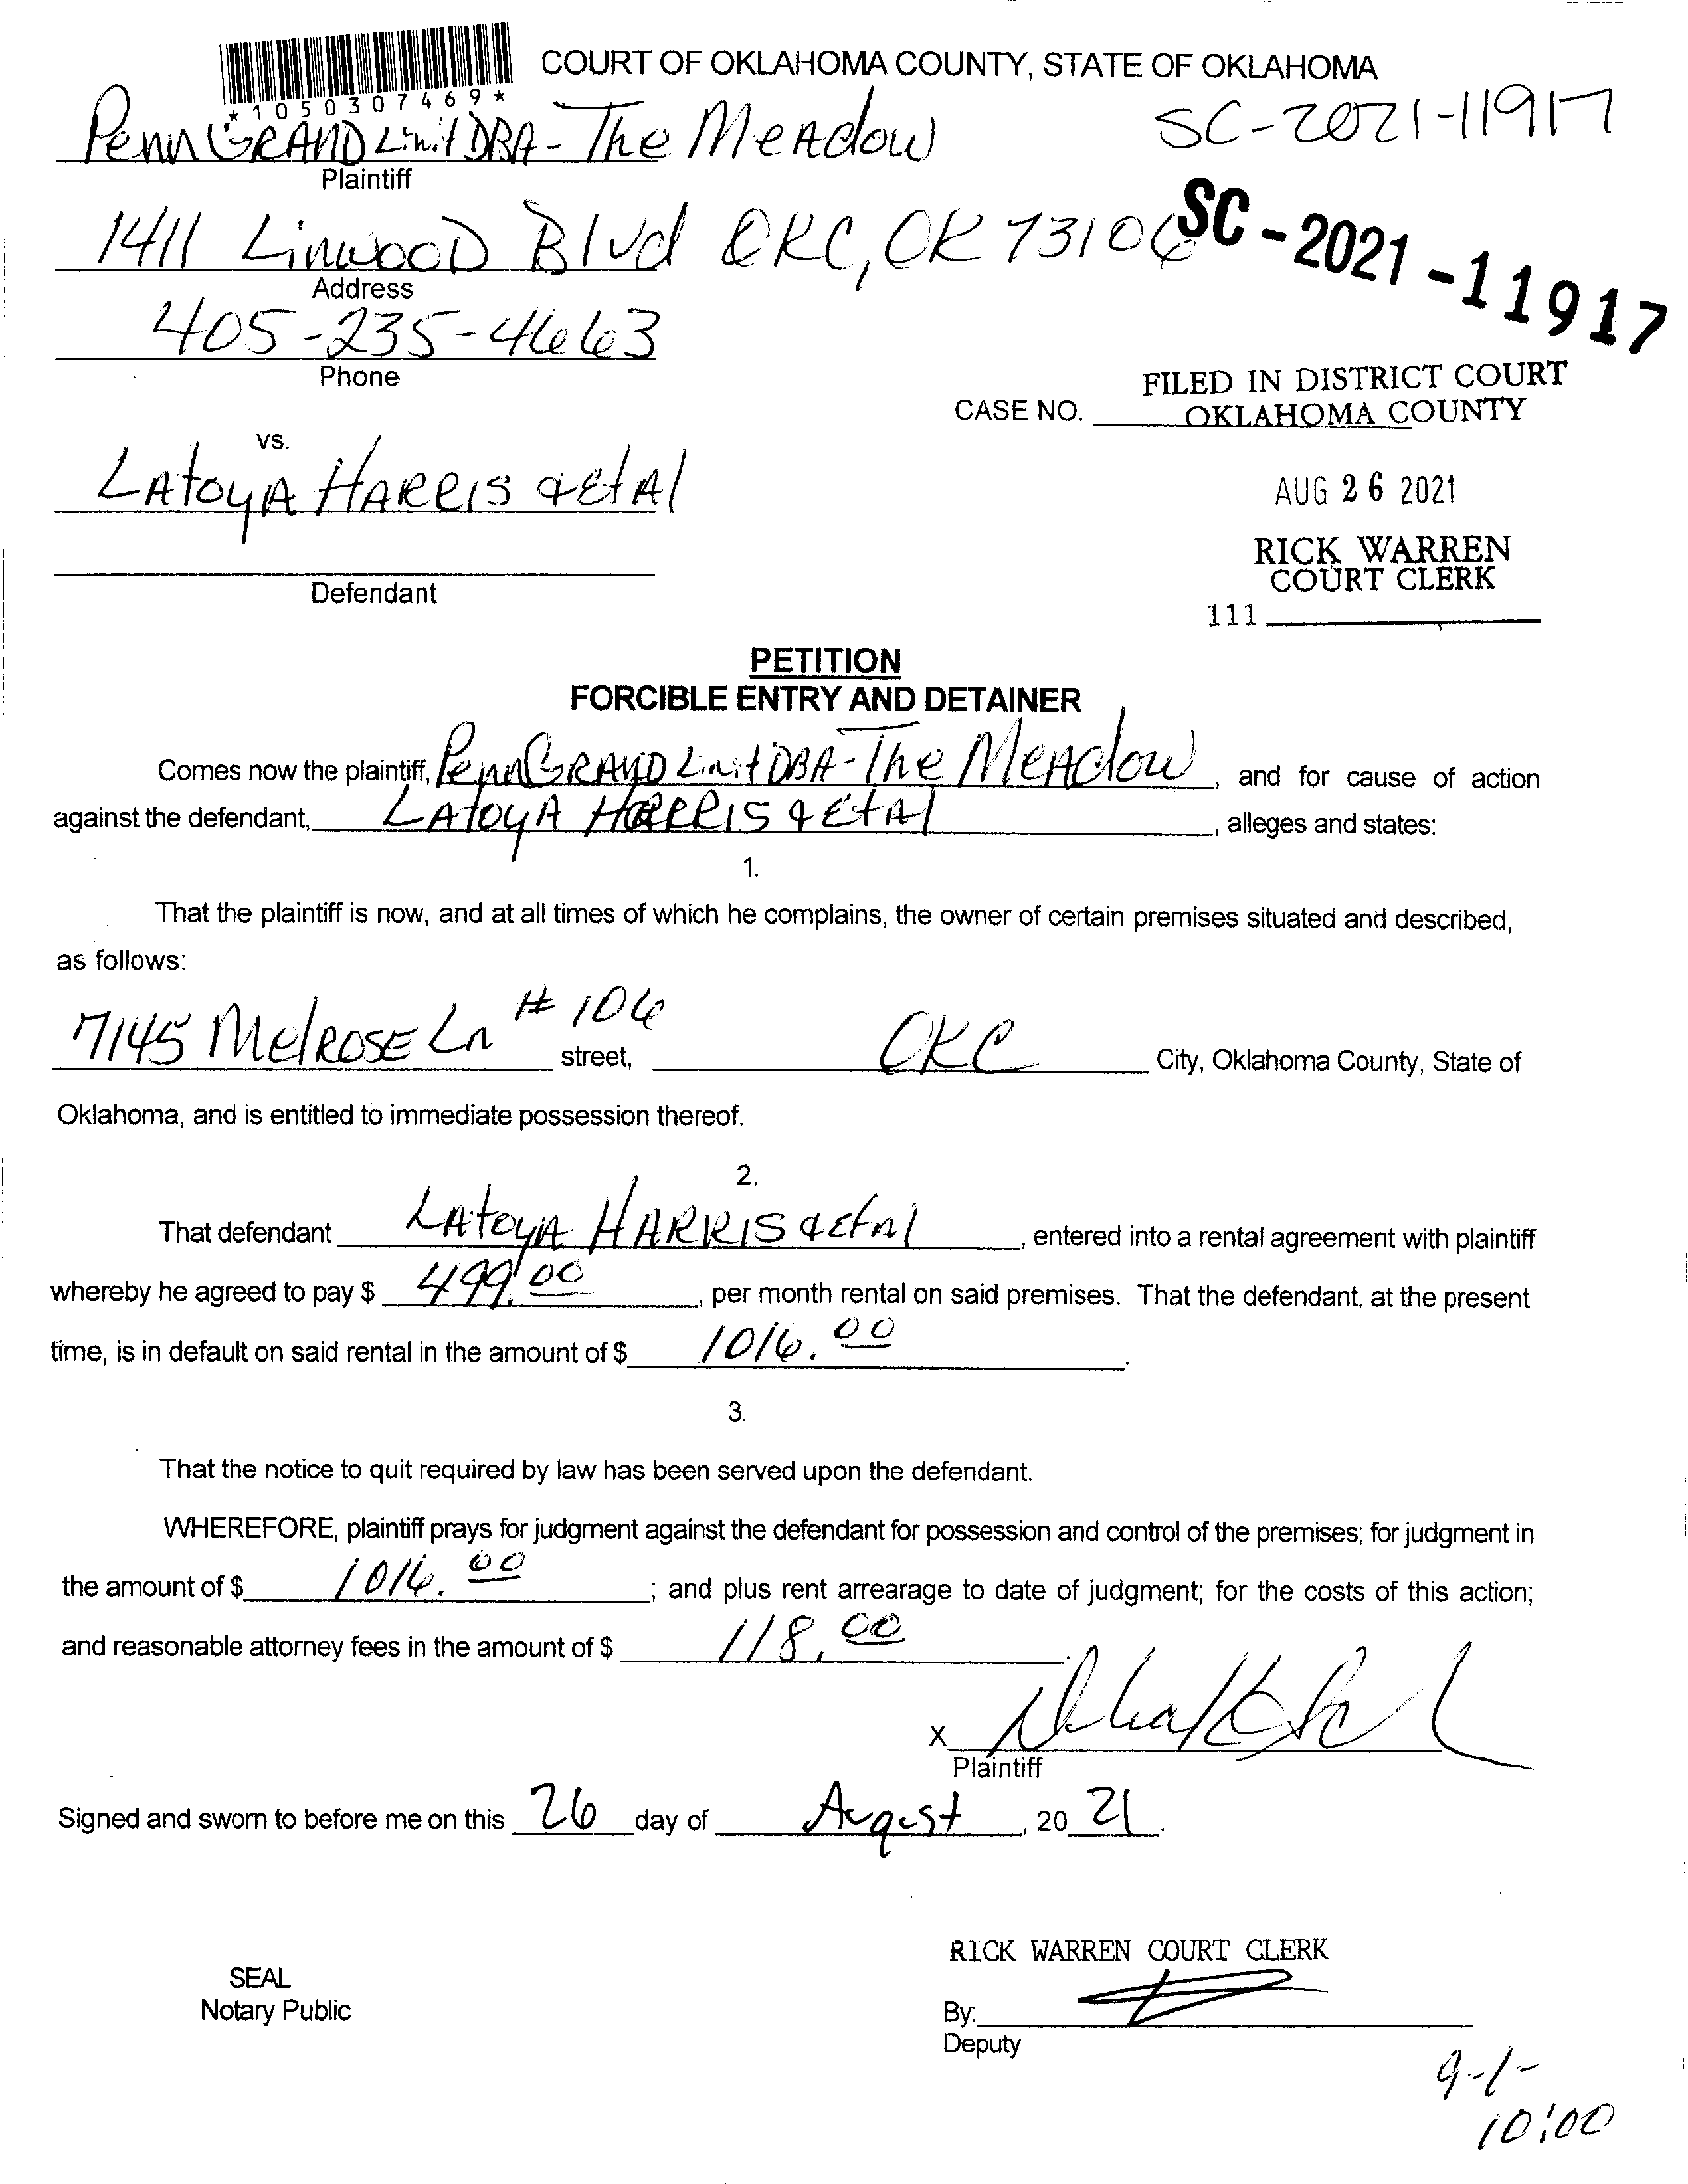 COURT OF OKLAHOMA COUNTY, STATE OF OKLAHOMA
*1050307469*
SC-2021-11917
Penn GRAND Limit DBA- The Meadow
Plaintiff
SC-2021-11917
1411 Linwood Blvd OKC, OK 73106
Address
405-235-4663
Phone
FILED IN DISTRICT COURT
CASE NO. OKLAHOMA COUNTY
vs.
LAtoyA HARRIS & etAl
AUG 26 2021
RICK WARREN
COURT CLERK
Defendant
111
PETITION
FORCIBLE ENTRY AND DETAINER
Comes now the plaintiff, Penn GRAND Limit DBA- The Meadow, and for cause of action
against the defendant, LAtoyA HARRIS & EtAl, alleges and states:
1.
That the plaintiff is now, and at all times of which he complains, the owner of certain premises situated and described,
as follows:
7145 MelROSE Ln # 106 street, OKC City, Oklahoma County, State of
Oklahoma, and is entitled to immediate possession thereof.
2.
That defendant LAtoyA HARRIS & etAl, entered into a rental agreement with plaintiff
whereby he agreed to pay $ 499.00, per month rental on said premises. That the defendant, at the present
time, is in default on said rental in the amount of $ 1016.00.
3.
That the notice to quit required by law has been served upon the defendant.
WHEREFORE, plaintiff prays for judgment against the defendant for possession and control of the premises; for judgment in
the amount of $ 1016.00; and plus rent arrearage to date of judgment; for the costs of this action;
and reasonable attorney fees in the amount of $ 118.00.
X
Plaintiff
Signed and sworn to before me on this 26 day of August, 20 21.
RICK WARREN COURT CLERK
SEAL
Notary Public
By:
Deputy
9-1-
10:00